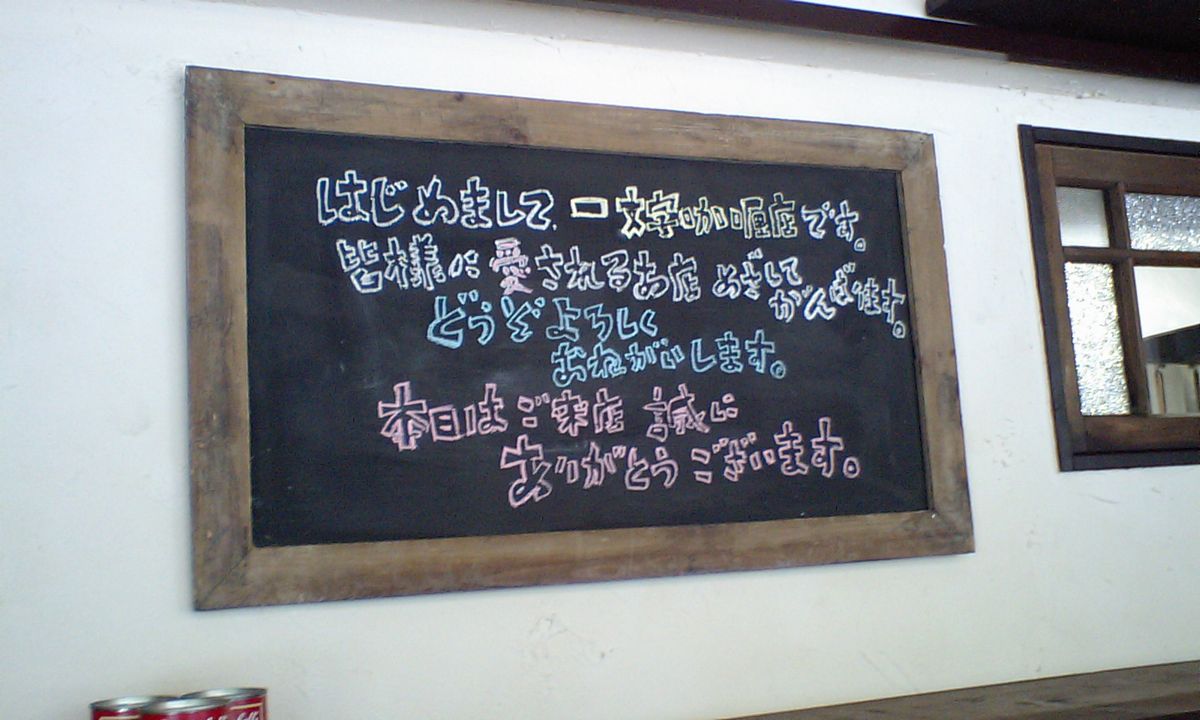 はじめまして、一文字咖喱店です。
皆様に愛されるお店めざして
がんばります。
どうぞよろしく
おねがいします。
本日はご来店誠に
ありがとうございます。